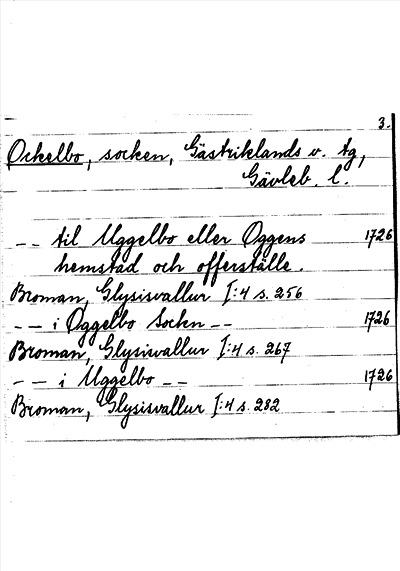 3.
Ockelbo, socken, Gästriklands v. tg,
Gävleb. l.
-- til Uggelbo eller Oggens 1726
hemstad och offerställe.
Broman, Glysisvallur I:4 s. 256
--- i Oggelbo Sockn -- 1726
Broman, Glysisvallur I:4 s. 267
--- i Uggelbo -- 1726
Broman, Glysisvallur I:4 s. 282